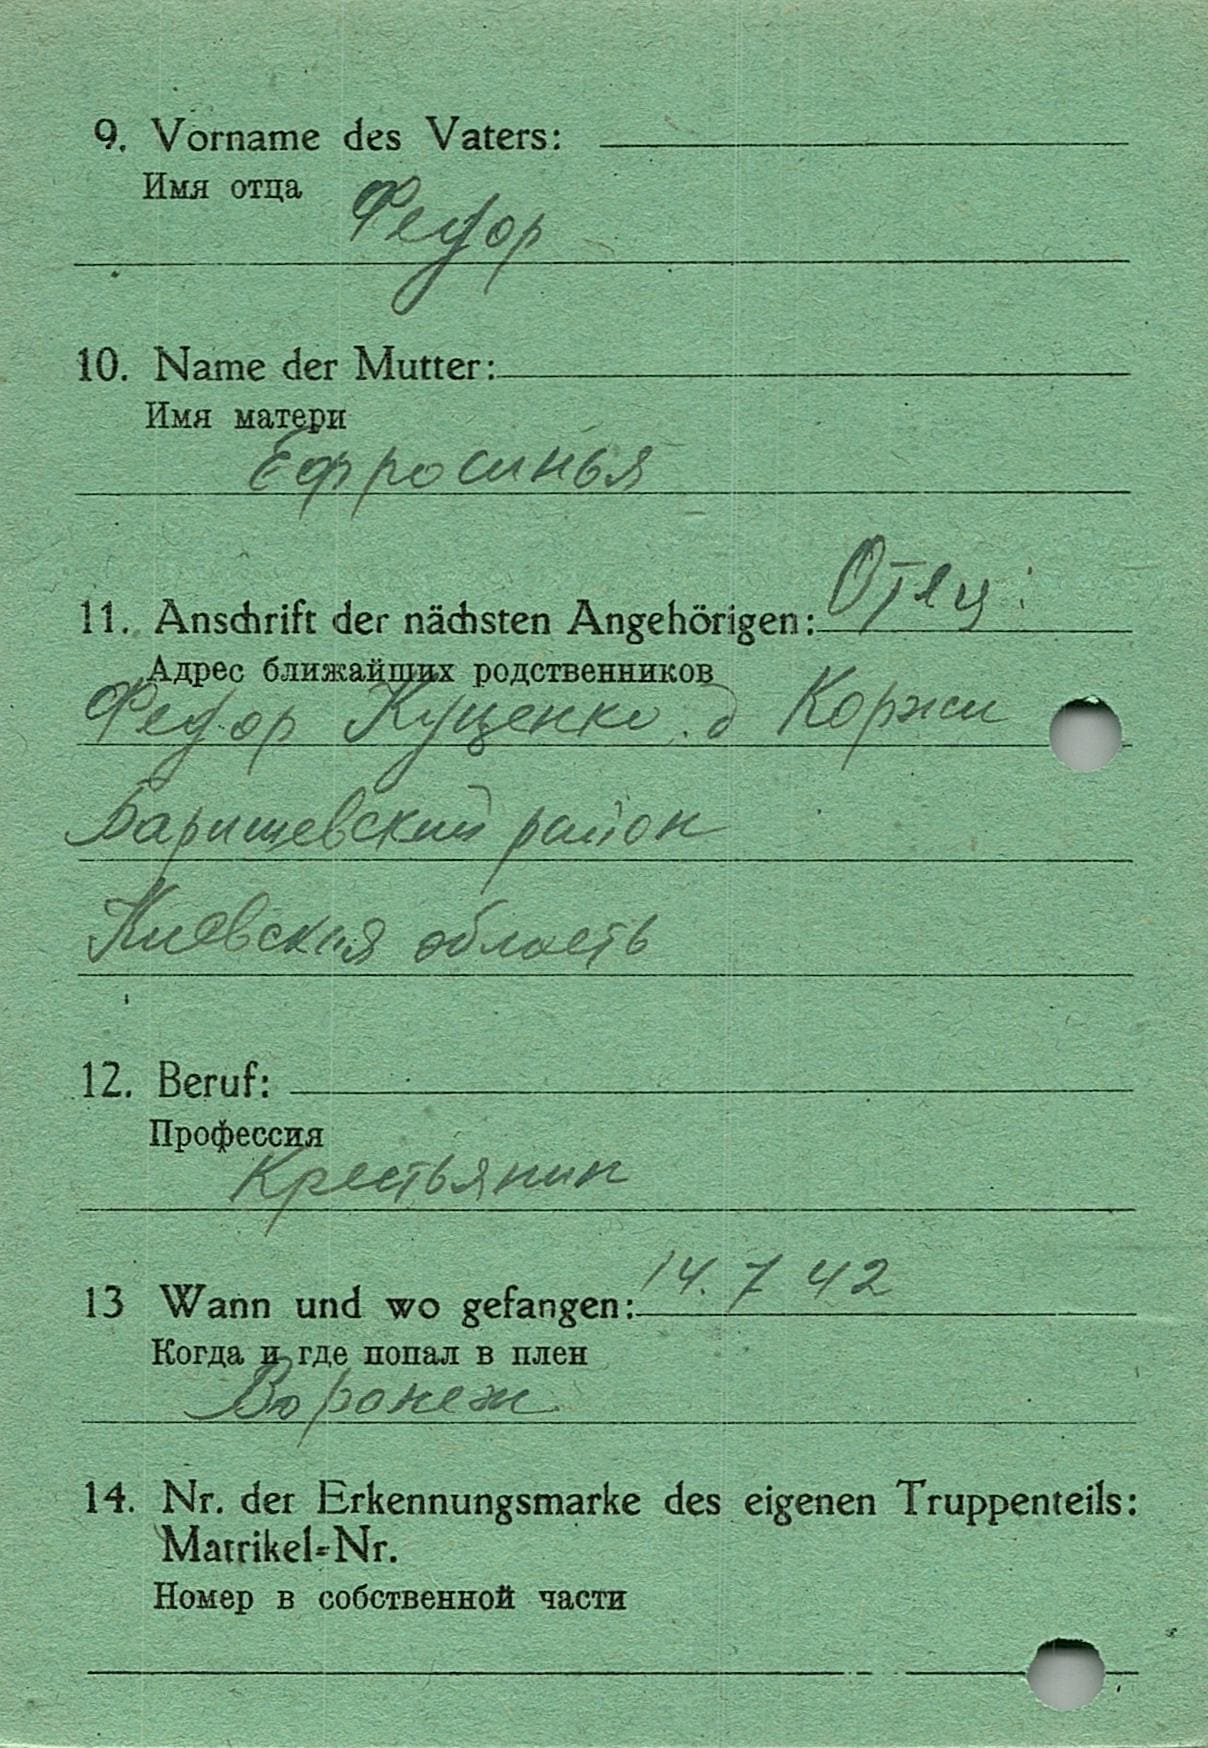 9. Vorname des Vaters:
Имя отца
Федор
10. Name der Mutter:
Имя матери
Ефросинья
11. Anschrift der nächsten Angehörigen: Отец:
Адрес ближайших родственников
Федор Куценко. д Коржи
Баришевский район
Киевская область
12. Beruf:
Профессия
Крестьянин
13 Wann und wo gefangen: 14. 7 42
Когда и где попал в плен
Воронеж
14. Nr. der Erkennungsmarke des eigenen Truppenteils:
Matrikel-Nr.
Номер в собственной части